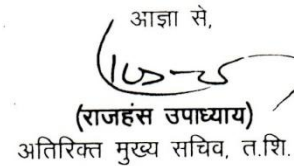 आज्ञा से,
(राजहंस उपाध्याय)
अतिरिक्त मुख्य सचिव, त.शि.